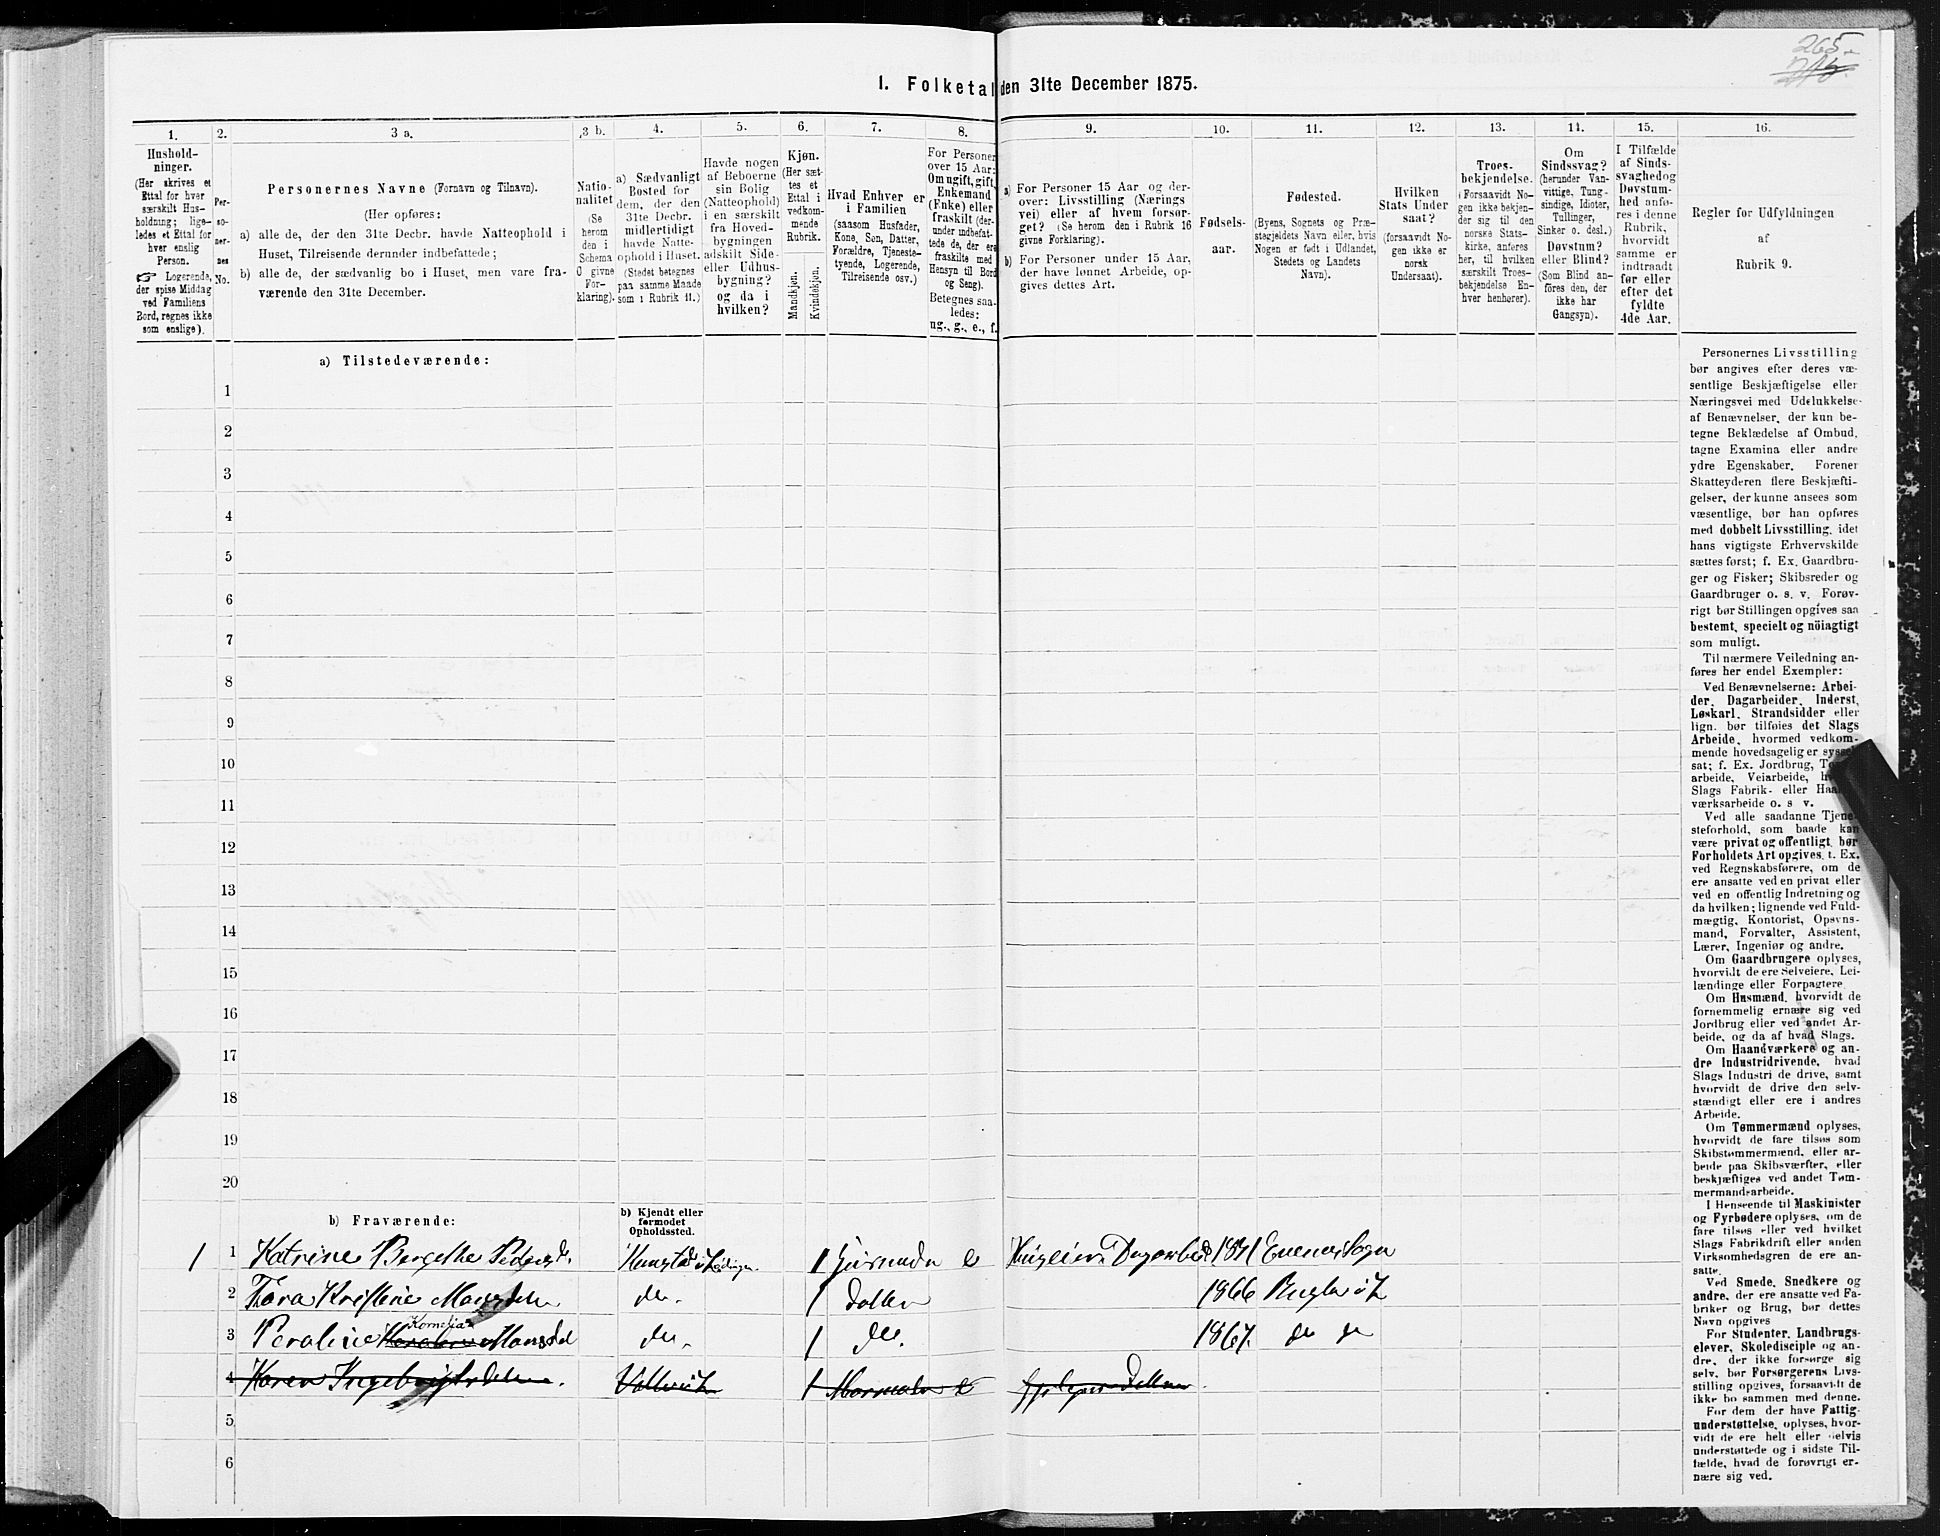 265
1. Folketal den 31te December 1875.
1.
2.
3 a.
3 b.
4.
5.
6.
7.
8.
9.
10.
11.
12.
13.
14.
15.
16.
Hushold-
ninger.
(Her skrives et
Ettal for hver
særskilt Hus-
holdning; lige-
ledes et Ettal for
hver enslig
Person.
☞ Logerende,
der spise Middag
ved Familiens
Bord, regnes ikke
som enslige).
Per-
so-
ner-
nes
No.
Personernes Navne (Fornavn og Tilnavn).
(Her opføres:
a) alle de, der den 31te Decbr. havde Natteophold i
Huset, Tilreisende derunder indbefattede;
b) alle de, der sædvanlig bo i Huset, men vare fra-
værende den 31te December.
Natio-
nalitet
(Se
herom
den i
Schema
O givne
For-
klaring).
a) Sædvanligt
Bosted for
dem, der den
31te Decbr.
midlertidigt
havde Natte-
ophold i Huset.
(Stedet betegnes
paa samme Maade
som i Rubrik 11.)
Havde nogen
af Beboerne
sin Bolig
(Natteophold)
i en særskilt
fra Hoved-
bygningen
adskilt Side-
eller Udhus-
bygning?
og da i
hvilken?
Kjøn.
(Her sæt-
tes et
Ettal i
vedkom-
mende
Rubrik.
Mandkjøn.
Kvindekjøn.
Hvad Enhver er
i Familien
(saasom Husfader,
Kone, Søn, Datter,
Forældre, Tjeneste-
tyende, Logerende,
Tilreisende osv.)
For Personer
over 15 Aar:
Om ugift, gift,
Enkemand
(Enke) eller
fraskilt (der-
under indbefat-
tede de, der ere
fraskilte med
Hensyn til Bord
og Seng).
Betegnes saa-
ledes:
ug., g., e., f.
a) For Personer 15 Aar og der-
over: Livsstilling (Nærings
vei) eller af hvem forsør-
get? (Se herom den i Rubrik 16
givne Forklaring).
b) For Personer under 15 Aar,
der have lønnet Arbeide, op-
gives dettes Art.
Fødsels-
aar.
Fødested.
(Byens, Sognets og Præ-
stegjeldets Navn eller, hvis
Nogen er født i Udlandet,
Stedets og Landets
Navn).
Hvilken
Stats Under
saat?
(forsaavidt No-
gen ikke er
norsk
Undersaat).
Troes-
bekjendelse.
(Forsaavidt No-
gen ikke bekjen-
der sig til den
norske Stats-
kirke, anføres
her, til hvilken
særskilt Troes-
bekjendelse En-
hver henhører).
Om
Sindssvag?
(herunder Van-
vittige, Tung-
sindige, Idioter,
Tullinger,
Sinker o. desl.)
Døvstum?
eller Blind?
(Som Blind an-
føres den, der
ikke har
Gangsyn).
I Tilfælde
af Sinds-
svaghed og
Døvstum-
hed anfø-
res i denne
Rubrik,
hvorvidt
samme er
indtraadt
før eller
efter det
fyldte
4de Aar.
Regler for Udfyldningen
af
Rubrik 9.
a) Tilstedeværende:
1
2
3
4
5
6
7
8
9
10
11
12
13
14
15
16
17
18
19
20
b) Fraværende:
b) Kjendt eller
formodet
Opholdssted.
1 1 Katrine Bergethe 1 e 1841
2 Kristine do. 1 1866
3 Kornelia do. 1 do. 1867 do do
4 Karen 1 e
5
6
Personernes Livsstilling
bør angives efter deres væ-
sentlige Beskjæftigelse eller
Næringsvei med Udelukkelse
af Benævnelser, der kun be-
tegne Beklædelse af Ombud,
tagne Examina eller andre
ydre Egenskaber. Forener
Skatteyderen flere Beskjæfti-
gelser, der kunne ansees som
væsentlige, bør han opføres
med dobbelt Livsstilling, idet
hans vigtigste Erhvervskilde
sættes først; f. Ex. Gaardbru-
ger og Fisker; Skibsreder og
Gaardbruger o. s. v. Forøv-
rigt bør Stillingen opgives saa
bestemt, specielt og nöiagtigt
som muligt.
Til nærmere Veiledning an-
føres her endel Exempler:
Ved Benævnelserne: Arbei-
der, Dagarbeider, Inderst,
Løskarl, Strandsidder eller
lign. bør tilføies det Slags
Arbeide, hvormed vedkom-
mende hovedsagelig er syssel-
sat; f. Ex. Jordbrug,
arbeide, Veiarbeide,
Slags Fabrik- eller
værksarbeide o. s v.
Ved alle saadanne Tjene-
steforhold, som baade kan
være privat og offentligt, bør
Forholdets Art opgives, t. Ex.
ved Regnskabsførere, om de
ere ansatte ved en privat eller
ved en offentlig Indretning og
da hvilken; lignende ved Fuld-
mægtig, Kontorist, Opsyns-
mand, Forvalter, Assistent,
Lærer, Ingeniør og andre.
Om Gaardbrugere oplyses,
hvorvidt de ere Selveiere, Lei-
lændinge eller Forpagtere.
Om Husmænd, hvorvidt de
fornemmelig ernære sig ved
Jordbrug eller ved andet Ar-
beide, og da af hvad Slags.
Om Haandværkere og an-
dre Industridrivende, hvad
Slags Industri de drive, samt
hvorvidt de drive den selv-
stændigt eller ere i andres
Arbeide.
Om Tømmermænd oplyses,
hvorvidt de fare tilsøs som
Skibstømmermænd, eller ar-
beide paa Skibsværfter, eller
beskjæftiges ved andet Tøm-
mermandsarbeide.
I Henseende til Maskinister
og Fyrbødere oplyses, om de
fare tilsøs eller ved hvilket
Slags Fabrikdrift eller anden
Virksomhedsgren de ere an-
satte.
Ved Smede, Snedkere og
andre, der ere ansatte ved Fa-
briker og Brug, bør dettes
Navn opgives
For Studenter, Landbrugs-
elever, Skoledisciple og an-
dre, der ikke forsørge sig
selv, bør Forsørgerens Livs-
stilling opgives, forsaavidt de
ikke bo sammen med denne.
For dem der have Fattig-
understøttelse, oplyses, hvor-
vidt de ere helt eller delvis
understøttede og i sidste Til-
fælde, hvad de forøvrigt er-
nære sig ved.